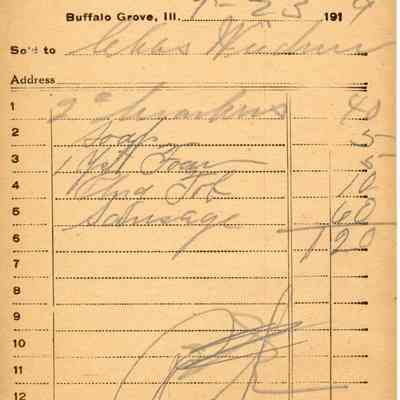 Buffalo Grove, Ill. 9-23 1914
Sold to Chas
Address
1 2 # 40
2 Soap 5
3 1 Yst Foam 5
4 Tob 10
5 Sausage 60
6 1 20
7
8
9
10
11
12